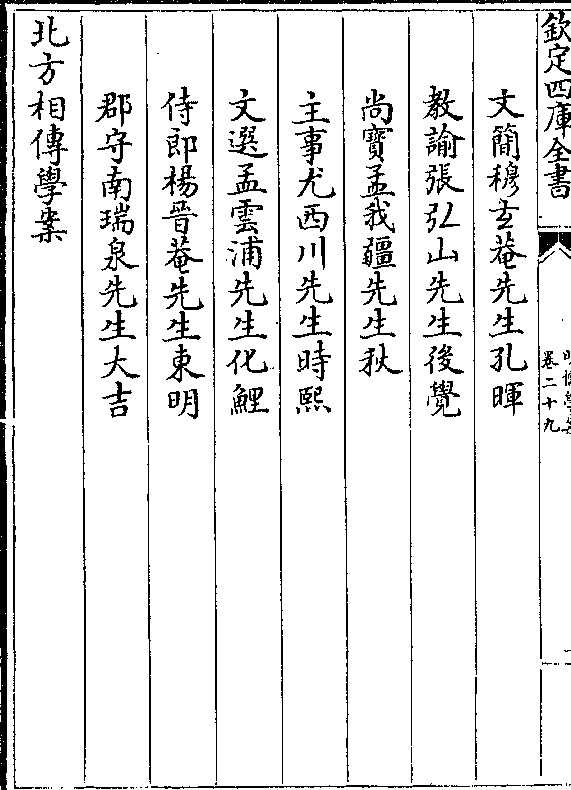 欽定四庫全書
明儒學案
卷二十九
文簡穆𤣥菴先生孔暉
教諭張弘山先生後覺
尚寶孟我疆先生秋
主事尤西川先生時熙
文選孟雲浦先生化鯉
侍郎楊晉菴先生東明
郡守南瑞泉先生大吉
北方相傳學案